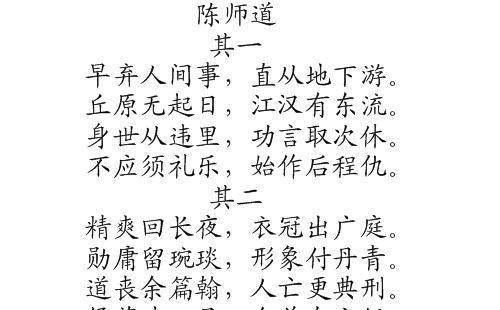 陈师道
其一
早弃人间事，直从地下游。
丘原无起日，江汉有东流。
身世从违里，功言取次休。
不应须礼乐，始作后程仇。
其二
精爽回长夜，衣冠出广庭。
勋庸留琬琰，形象付丹青。
道丧余篇翰，人亡更典刑。